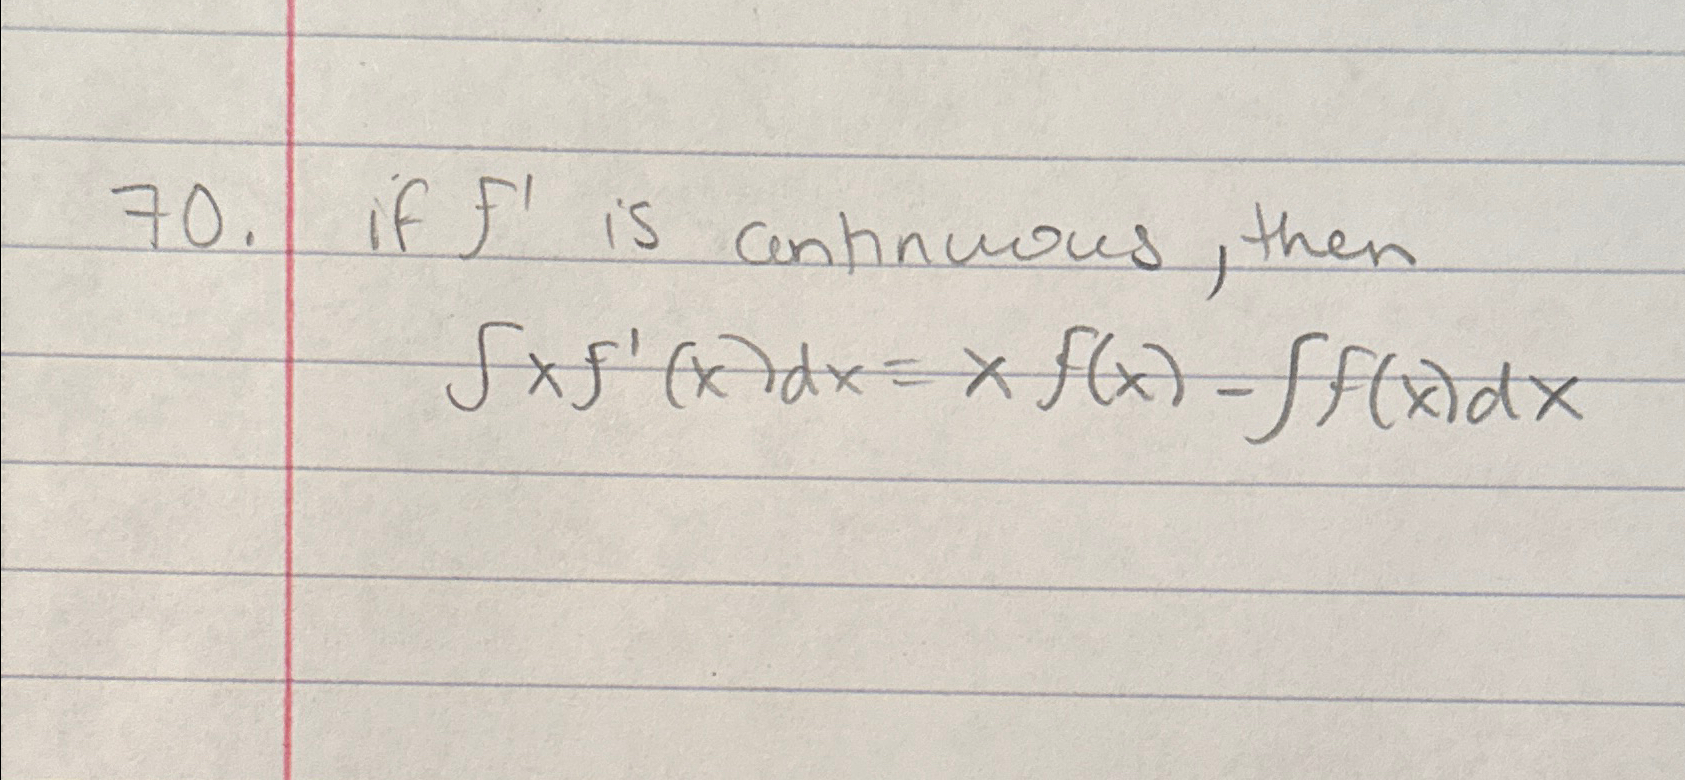 70. if f' is continuous, then
∫xf'(x)dx = x f(x) - ∫f(x)dx